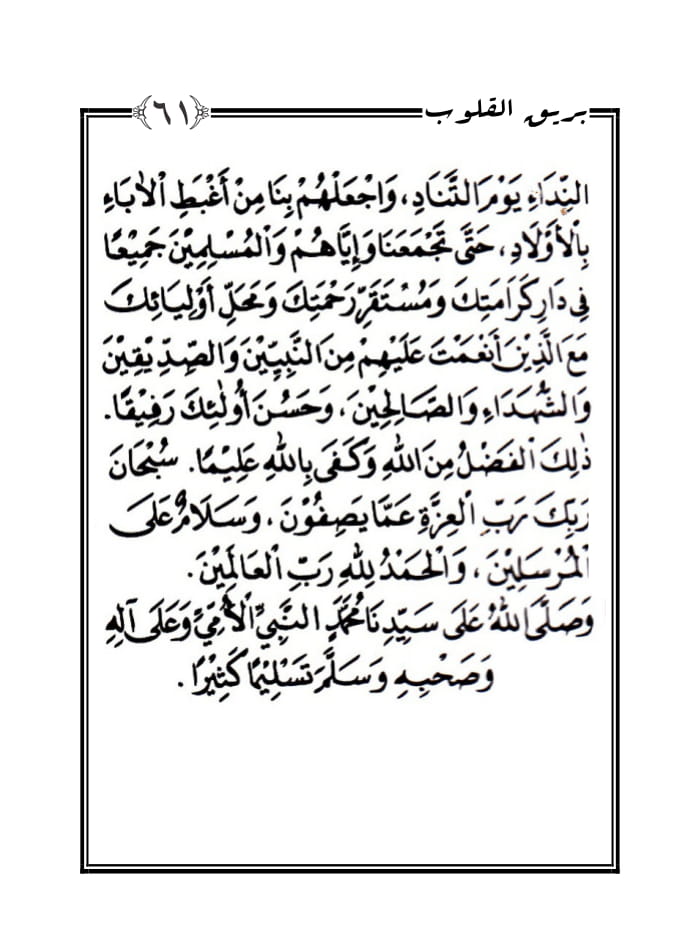 بريق القلوب
﴿٦١﴾
النِّدَاءِ يَوْمَ التَّنَادِ، وَاجْعَلْهُمْ بِنَا مِنْ أَغْبَطِ الْآبَاءِ
بِالْأَوْلَادِ، حَتَّى تَجْمَعَنَا وَإِيَّاهُمْ وَالْمُسْلِمِيْنَ جَمِيْعًا
فِي دَارِ كَرَامَتِكَ وَمُسْتَقَرِّ رَحْمَتِكَ وَمَحَلِّ أَوْلِيَائِكَ
مَعَ الَّذِيْنَ أَنْعَمْتَ عَلَيْهِمْ مِنَ النَّبِيِّيْنَ وَالصِّدِّيْقِيْنَ
وَالشُّهَدَاءِ وَالصَّالِحِيْنَ، وَحَسُنَ أُولٰئِكَ رَفِيْقًا.
ذٰلِكَ الْفَضْلُ مِنَ اللهِ وَكَفَى بِاللهِ عَلِيْمًا. سُبْحَانَ
رَبِّكَ رَبِّ الْعِزَّةِ عَمَّا يَصِفُوْنَ، وَسَلَامٌ عَلَى
الْمُرْسَلِيْنَ، وَالْحَمْدُ لِلّٰهِ رَبِّ الْعَالَمِيْنَ.
وَصَلَّى اللهُ عَلَى سَيِّدِنَا مُحَمَّدٍ النَّبِيِّ الْأُمِّيِّ وَعَلَى آلِهِ
وَصَحْبِهِ وَسَلَّمَ تَسْلِيْمًا كَثِيْرًا.